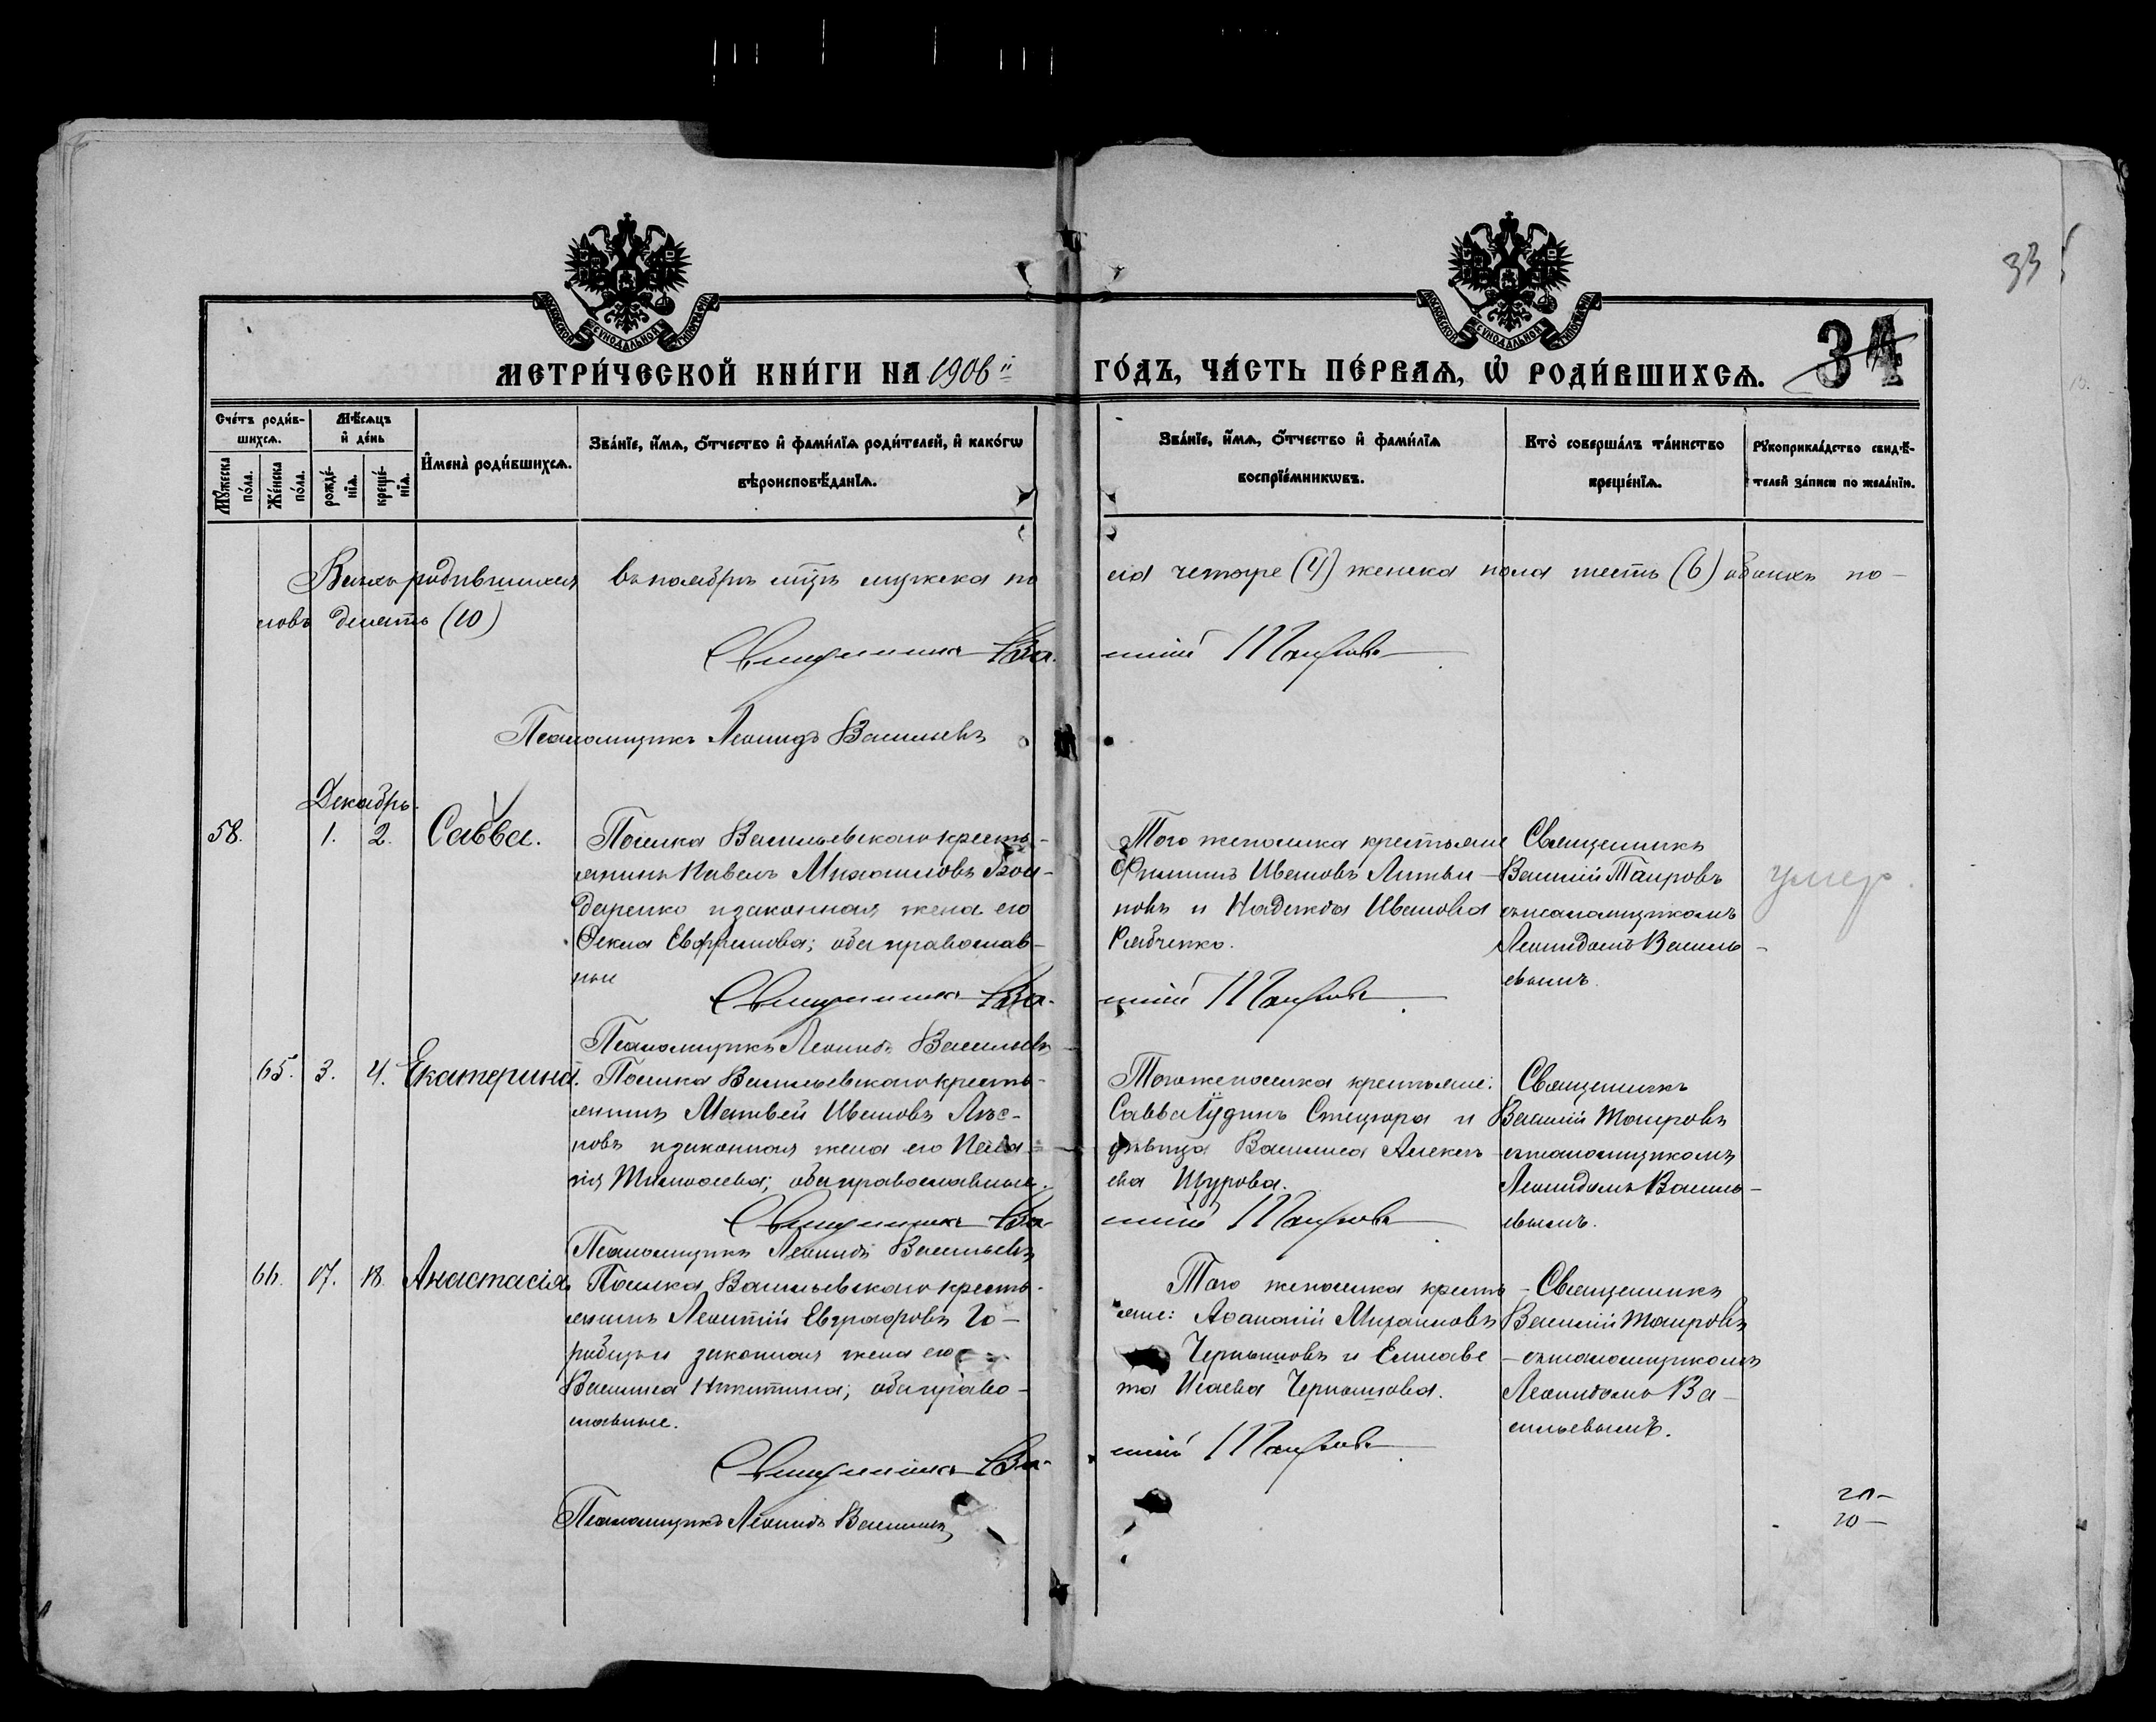 33
МОСКОВСКОЙ СѴНОДАЛЬНОЙ ТИПОГРАФІИ
МОСКОВСКОЙ СѴНОДАЛЬНОЙ ТИПОГРАФІИ
МЕТРИ́ЧЕСКОЙ КНИ́ГИ НА 1906й ГО́ДЪ, ЧА́СТЬ ПЕ́РВАѦ, Ѡ҆ РОДИ́ВШИХСѦ. 34
Сче́тъ роди́в-
шихсѧ.
Мꙋ́жеска по́ла.
Же́нска по́ла.
Мѣ́сѧцъ
и҆ де́нь
рожде́-
нїѧ.
креще́-
нїѧ.
И҆мена̀ роди́вшихсѧ.
Зва́нїе, и҆́мѧ, ѻ҆́тчество и҆ фами́лїѧ роди́телей, и҆ како́гѡ
вѣроисповѣ́данїѧ.
Зва́нїе, и҆́мѧ, ѻ҆́тчество и҆ фами́лїѧ
воспрїе́мникѡвъ.
Кто̀ соверша́лъ та́инство
креще́нїѧ.
Рꙋкоприкла́дство свидѣ́-
телей за́писи по жела́нїю.
Всѣхъ родившихся въ ноябрѣ мцѣ мужска по
ла четыре (4) женска пола шесть (6) обоихъ по-
ловъ десять (10)
Священникъ Ва-
силій Таировъ
Псаломщикъ Леонидъ Васильевъ
Декабрь.
58. 1. 2. Савва.
Поселка Васильевскаго кресть-
янинъ Павелъ Михаиловъ Бон-
даренко и законная жена его
Ѳекла Евфимова; оба православ-
ные
Того же поселка крестьяне
Филиппъ Ивановъ Литви-
новъ и Надежда Иванова
Рябченко.
Священникъ
Василій Таировъ
съ псаломщикомъ
Леонидомъ Василь-
евымъ.
умер.
Священникъ Ва-
силій Таировъ
Псаломщикъ Леонидъ Васильевъ
65. 3. 4. Екатерина.
Поселка Васильевскаго кресть-
янинъ Матвей Ивановъ Лѣс-
новъ и законная жена его Пела-
гія Тимофеева; оба православные.
Того же поселка крестьяне:
Савва Іудинъ Стецюра и
дѣвица Василиса Алексѣ-
ева Щурова.
Священникъ
Василій Таировъ
съ псаломщикомъ
Леонидомъ Василь-
евымъ.
Священникъ Ва-
силій Таировъ
Псаломщикъ Леонидъ Васильевъ
66. 17. 18. Анастасія
Поселка Васильевскаго кресть-
янинъ Леонтій Евграфовъ Го-
робецъ и законная жена его
Василиса Никитина; оба право-
славные.
Того же поселка кресть-
яне: Аѳанасій Михаиловъ
Чернышовъ и Елисаве
та Исаева Чернышова.
Священникъ
Василій Таировъ
съ псаломщикомъ
Леонидомъ Ва-
сильевымъ.
Священникъ Ва-
силій Таировъ
Псаломщикъ Леонидъ Васильевъ
20-
20-